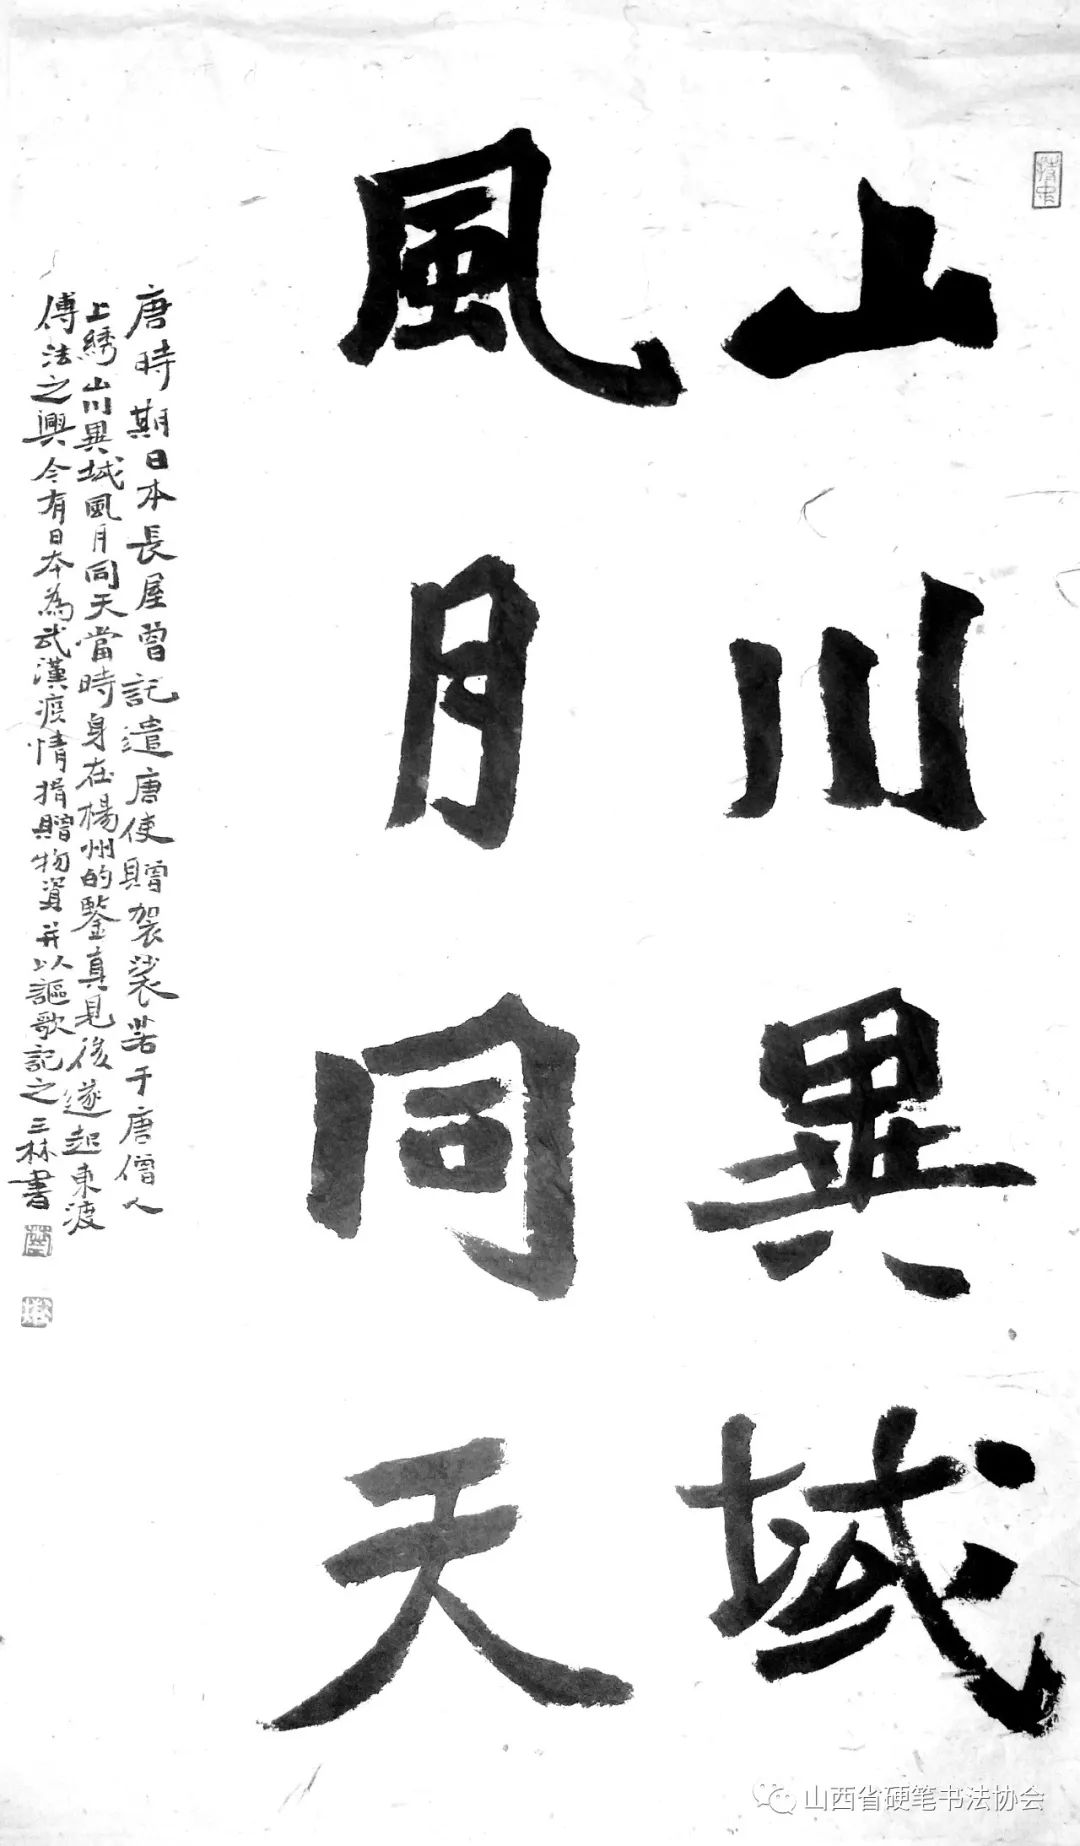 山川異域
風月同天
唐時期日本長屋曾記遣唐使贈袈裟若干唐僧人
上綉山川異域風月同天當時身在楊州的鑒真見後遂起東渡
傳法之興今有日本為武漢疫情捐贈物資并以謳歌記之三林書
山西省硬笔书法协会